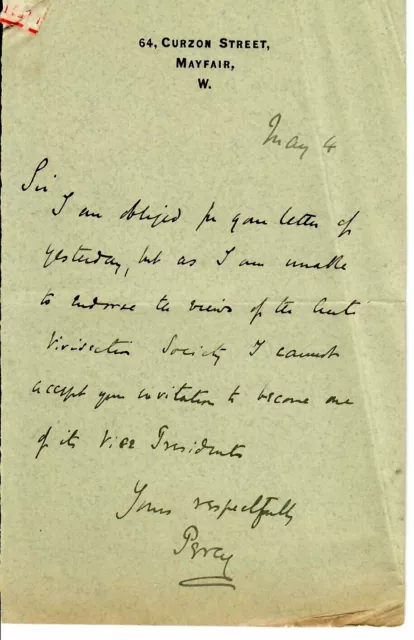 64, CURZON STREET,
MAYFAIR,
W.
May 4
Sir
I am obliged for your letter of
yesterday, but as I am unable
to endorse the views of the Anti
Vivisection Society I cannot
accept your invitation to become one
of its Vice Presidents
Yours respectfully
Percy